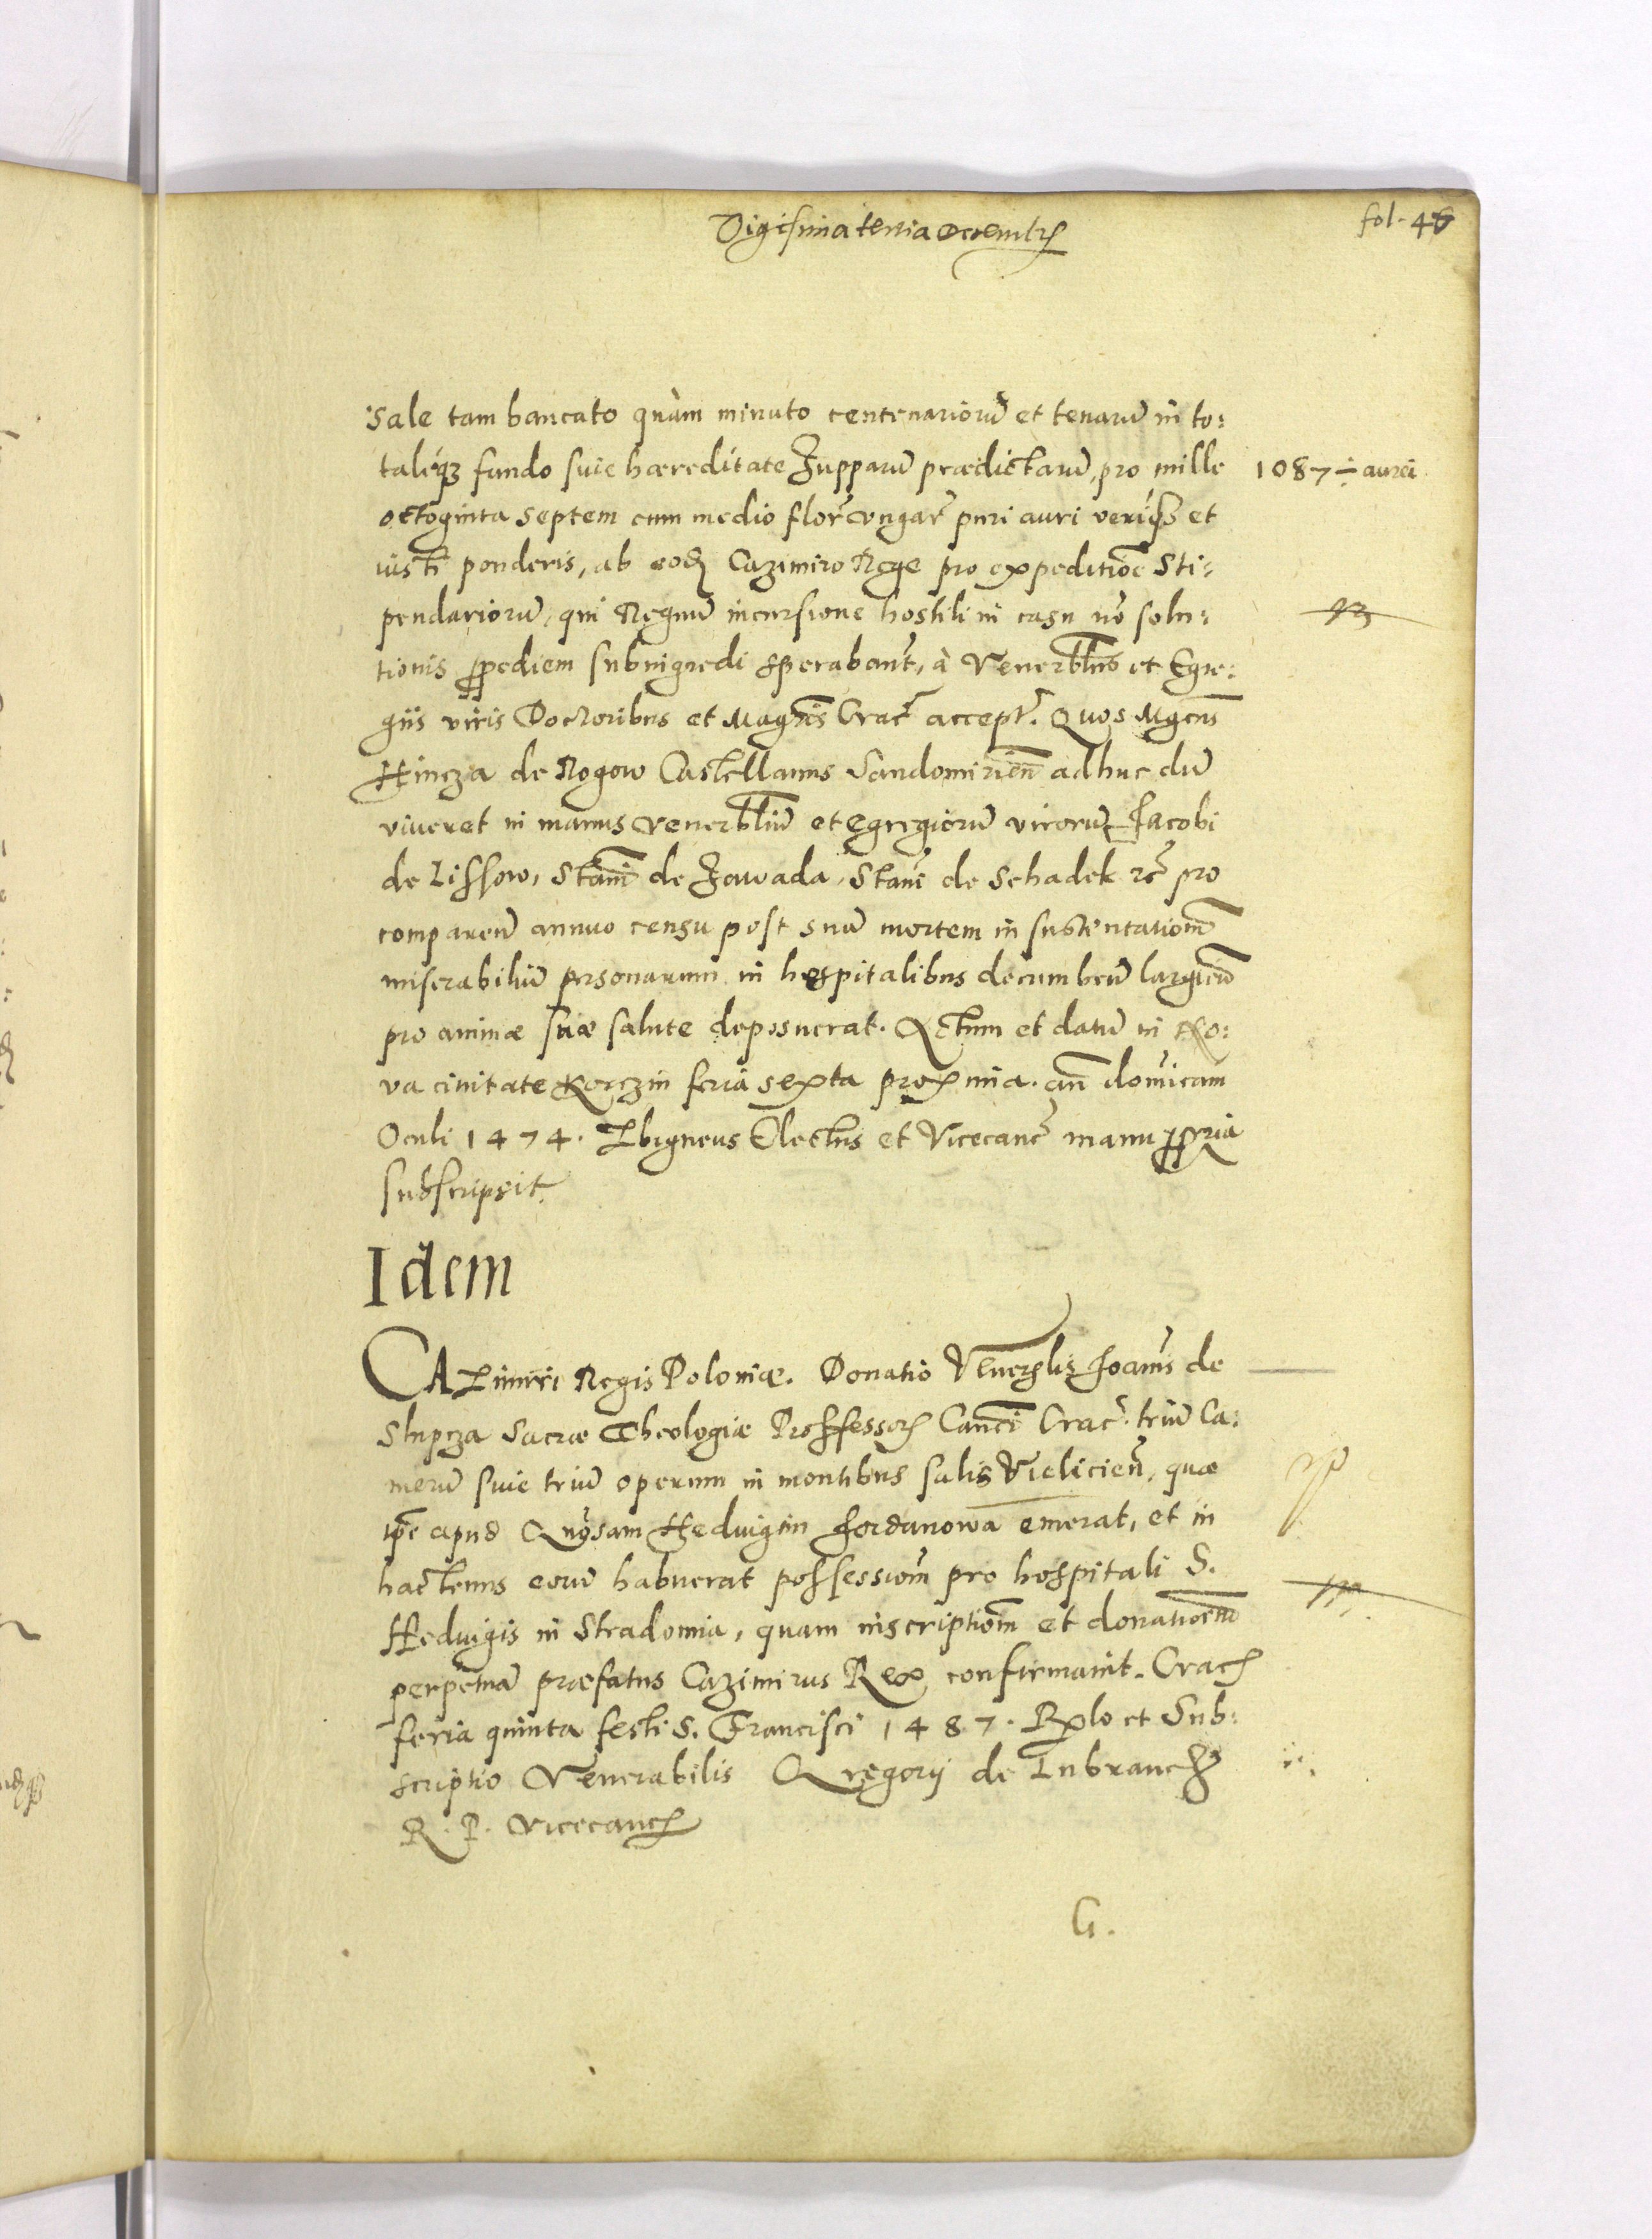 Vigesima tertia Decembr
fol. 46
Sale tam bancato quàm minuto centenariorū et tenarū in to:
taliq3 fundo siue hæreditate Zupparū prædictarū, pro mille
1087 ÷ aurei
octoginta septem cum medio flor̄ Vngar̄ puri auri veriq3 et
iusti ponderis, ab eod Cazimiro Rege pro expeditiōe Sti:
pendariorū, qui Regnū incursione hostili in casu nō solu:
tionis ppediem subingredi sperabant, à Venerblibus et Egre:
giis viris Doctoribus et Magris̄ Crac̄ accept. Quos Mgcus̄
Hincza de Rogow Castellanus Sandomirien̄ adhuc dū
viueret in manus Venerbliū et egregiorū virorū Jacobi
de Lissow, Stani de Zawada, Stani de Schadek rc̄ pro
comparen̄ annuo censu post suā mortem in sustentationē
miserabiliū personarum in hospitalibus decumben̄ largien̄
pro animæ suæ salute deposuerat. Actum et datū in No:
va ciuitate Korczin feria sexta proxima. an̄ dominicam
Oculi 1474. Zbigneus Electus et Vicecanc̄ manu ppria
subscripsit.
Idem
CAZimiri Regis Poloniæ. Donatio Venerblis Joanis de
Slupcza Sacræ Theologiæ Professor Canci Crac̄. triū Ca:
merū siue triū operum in montibus salis Vieliciēn, quæ
ipē apud Hedvigim Jordanowa emerat, et in
hactenus eorū habuerat possessionē pro hospitali S.
Hedvigis in Stradomia, quam inscriptionē et donationem
perpetuā præfatus Cazimirus Rex confirmauit. Crac
feria quinta festi S. Francisci 1487. Rlo et Sub:
scriptio Venerabilis Gregorij de Lubrancz
R. P. Vicecanc
G.